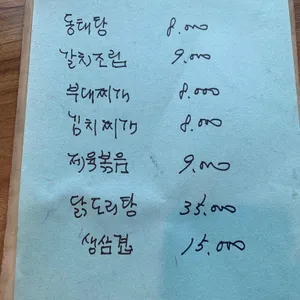 동태탕 8.000
갈치조림 9.000
부대찌개 8.000
김치찌개 8.000
제육볶음 9.000
닭도리탕 35.000
생삼겹 15.000